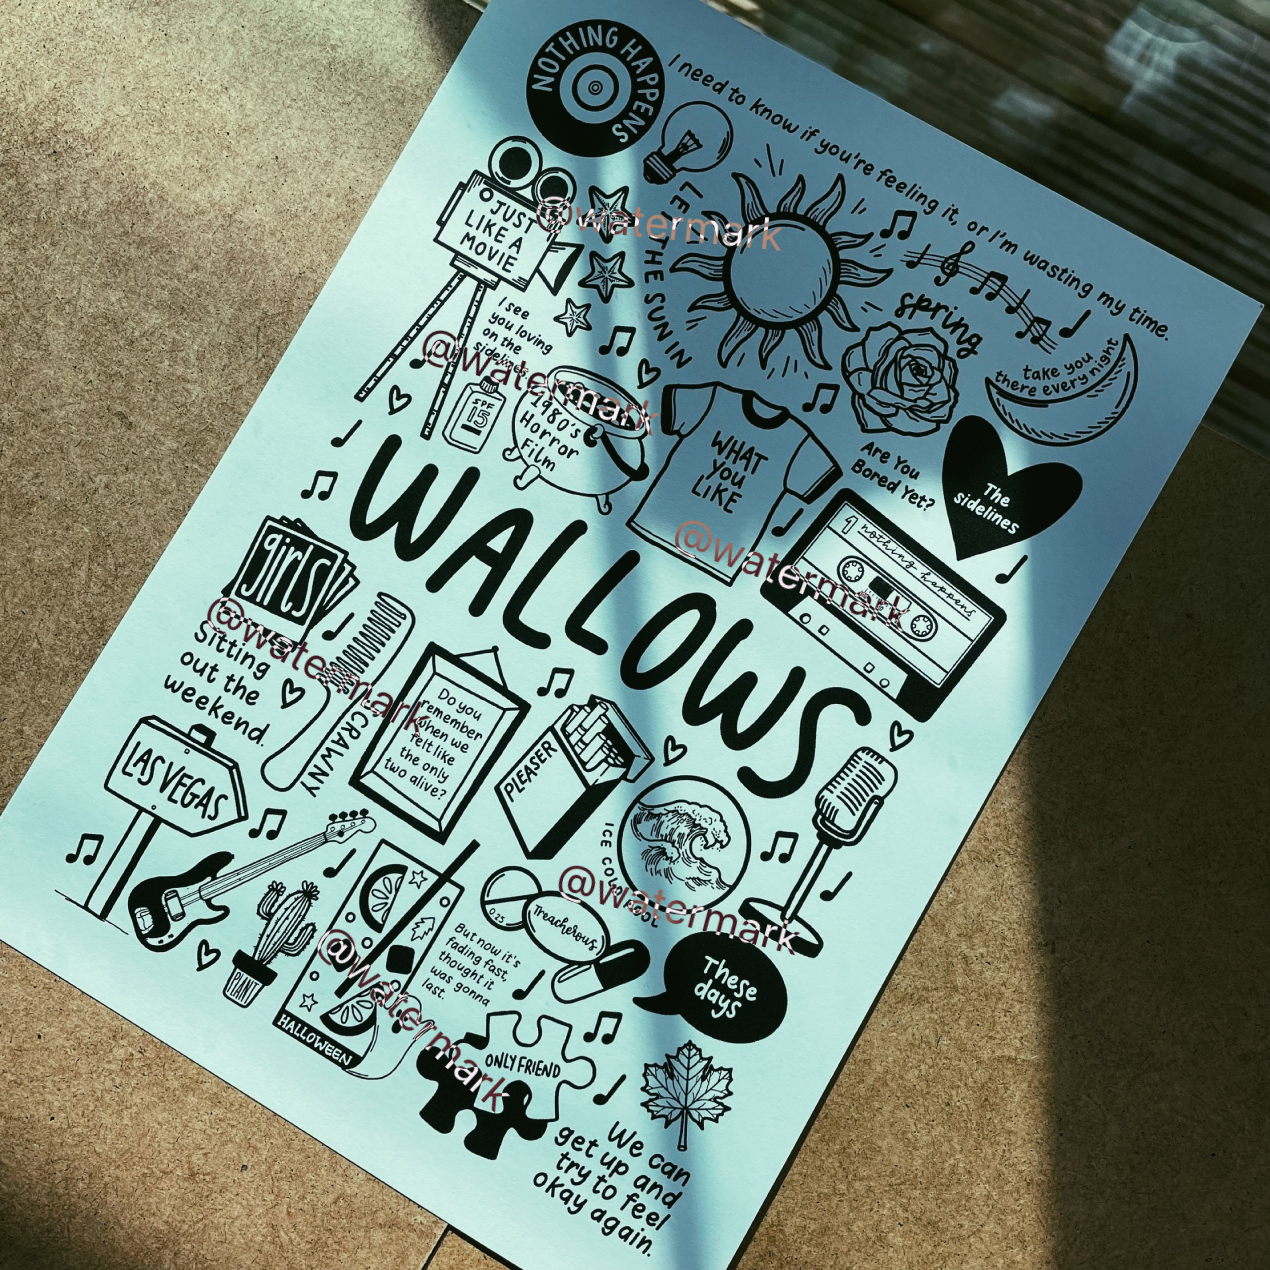 NOTHING HAPPENS
I need to know if you're feeling it, or I'm wasting my time.
JUST
LIKE A
MOVIE
LET THE SUN IN
@watermark
spring
take you
there every night
I see
you loving
on the
sidelines
@watermark
SPF
15
1980's
Horror
Film
WHAT
YOU
LIKE
Are You
Bored Yet?
The
sidelines
1 nothing happens
@watermark
WALLOWS
girls
@watermark
Sitting
out the
weekend.
CRAWNY
Do you
remember
when we
felt like
the only
two alive?
PLEASER
LAS VEGAS
ICE COLD POOL
@watermark
0.25
Treacherous
But now it's
fading fast,
thought it
was gonna
last.
These
days
PLANT
@watermark
HALLOWEEN
ONLY FRIEND
We can
get up and
try to feel
okay again.